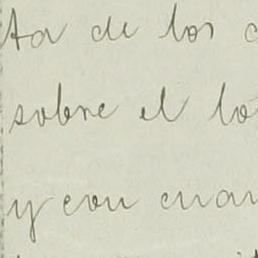 ta de los
sobre el lo
y con cuan